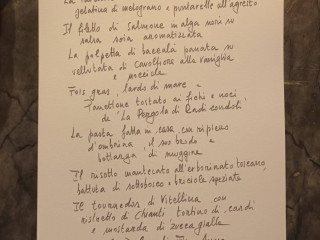 gelatina di melograno e puntarelle all'agresto
Il filetto di Salmone in alga nori su
salsa soia aromatizzata
La polpetta di baccalà panata su
vellutata di Cavolfiore alla vaniglia
e nocciola
Fois gras, lardo di mare e
Panettone tostato ai fichi e noci
de 'La Pergola di Radicondoli'
La pasta fatta in casa, con ripieno
d'ombrina, il suo brodo e
bottarga di muggine
Il risotto mantecato all'erborinato toscano,
battuta di sottobosco e briciole speziate
Il tournedos di Vitellina con
ristretto di Chianti, tortino di cardi
e mostarda di zucca gialla